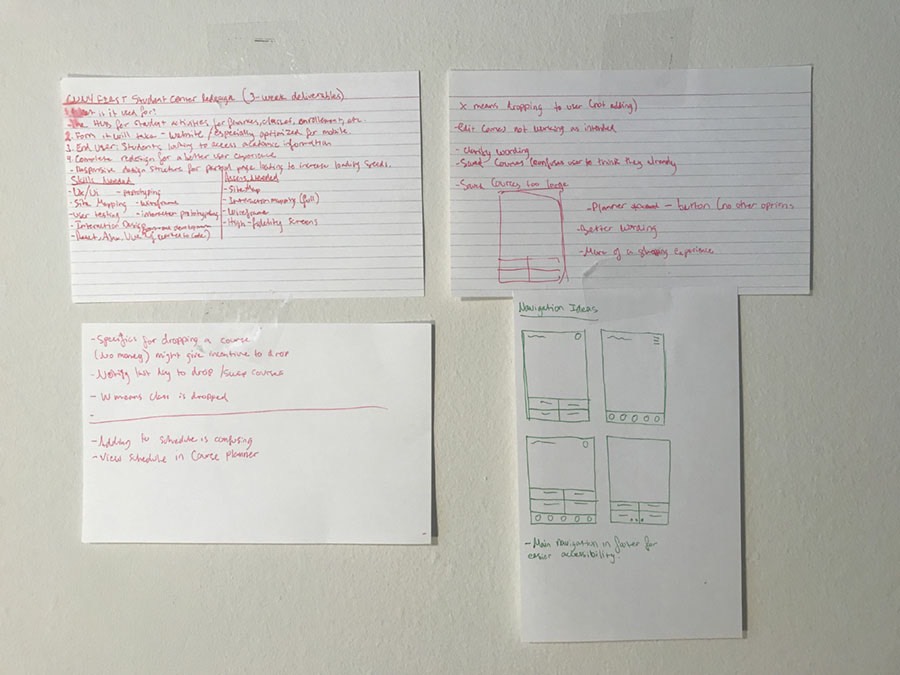 CUNY FIRST Student Center Redesign (3-week deliverables)
it used for:
Hub for student activities for finances, classes, enrollment, etc.
2. Form it will take - Website / especially optimized for mobile
3. End User: Students looking to access academic information
4. Complete redesign for a better user experience
- Responsive design structure for page testing to increase loading speeds.
Skills Needed
- UX/UI - prototyping
- Site Mapping - wireframe
- User testing - interaction prototyping
- Interaction Design
Assets Needed
- Site Map
- Interaction Mapping (full)
- Wireframe
- High-fidelity screens
X means dropping to user (not adding)
- edit courses not working as intended
- clarify wording
- Saved Courses (confuses user to think they already
- Saved Courses too large
- Planner - button (no other options
- Better wording
- More of a shopping experience
- Specifics for dropping a course
(no money) might give incentive to drop
- Notify last day to drop / swap courses
- W means class is dropped
-
- Adding to schedule is confusing
- View schedule in Course planner
Navigation Ideas
- Main navigation in footer for
easier accessibility.